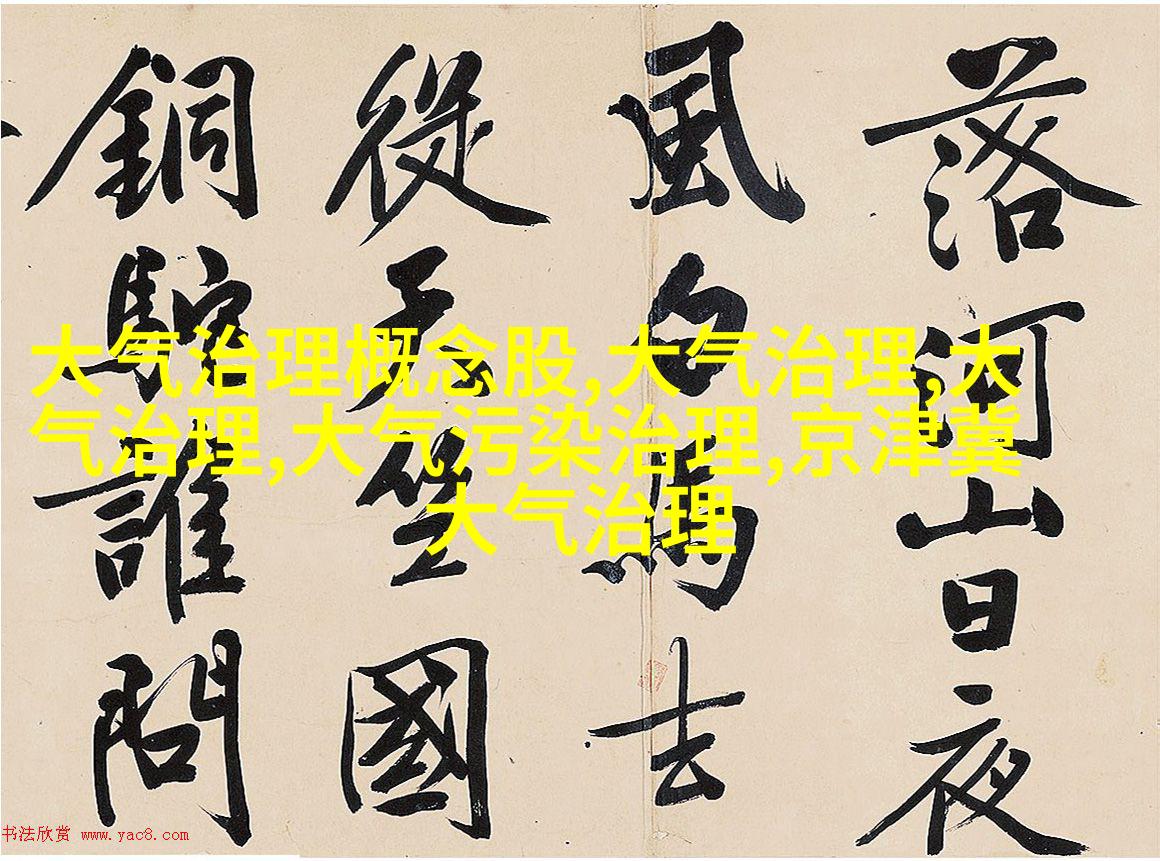 落河山日夜
風白馬去
從天竺國
銅駝誰問
大气治理概念股,大气治理,大
气治理,大气污染治理,京津冀
大气治理
书法欣赏 www.yac8.com